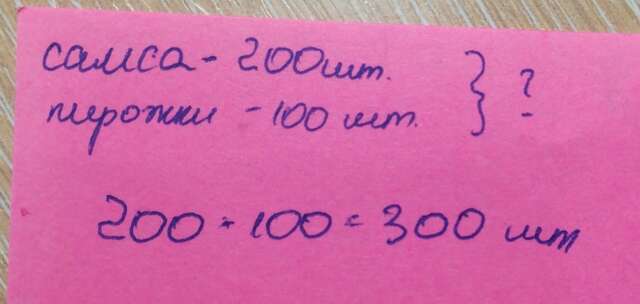 самса - 200 шт. } ?
пирожки - 100 шт.
200 - 100 = 300 шт